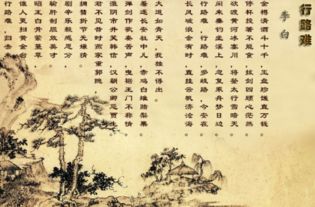 行路难
李白
金樽清酒斗十千，玉盘珍馐直万钱。
停杯投箸不能食，拔剑四顾心茫然。
欲渡黄河冰塞川，将登太行雪暗天。
闲来垂钓坐溪上，忽复乘舟梦日边。
行路难，行路难，多歧路，今安在。
长风破浪会有时，直挂云帆济沧海。
大道如青天，我独不得出。
羞逐长安社中儿，赤鸡白雉赌梨栗。
弹剑作歌奏苦声，曳裾王门不称情。
淮阴市井笑韩信，汉朝公卿忌贾生。
君不见昔时燕家重郭隗，
拥篲折节无嫌猜。
剧辛乐毅感恩分，
输肝剖胆效英才。
昭王白骨萦蔓草，
谁人更扫黄金台。
行路难，归去来。